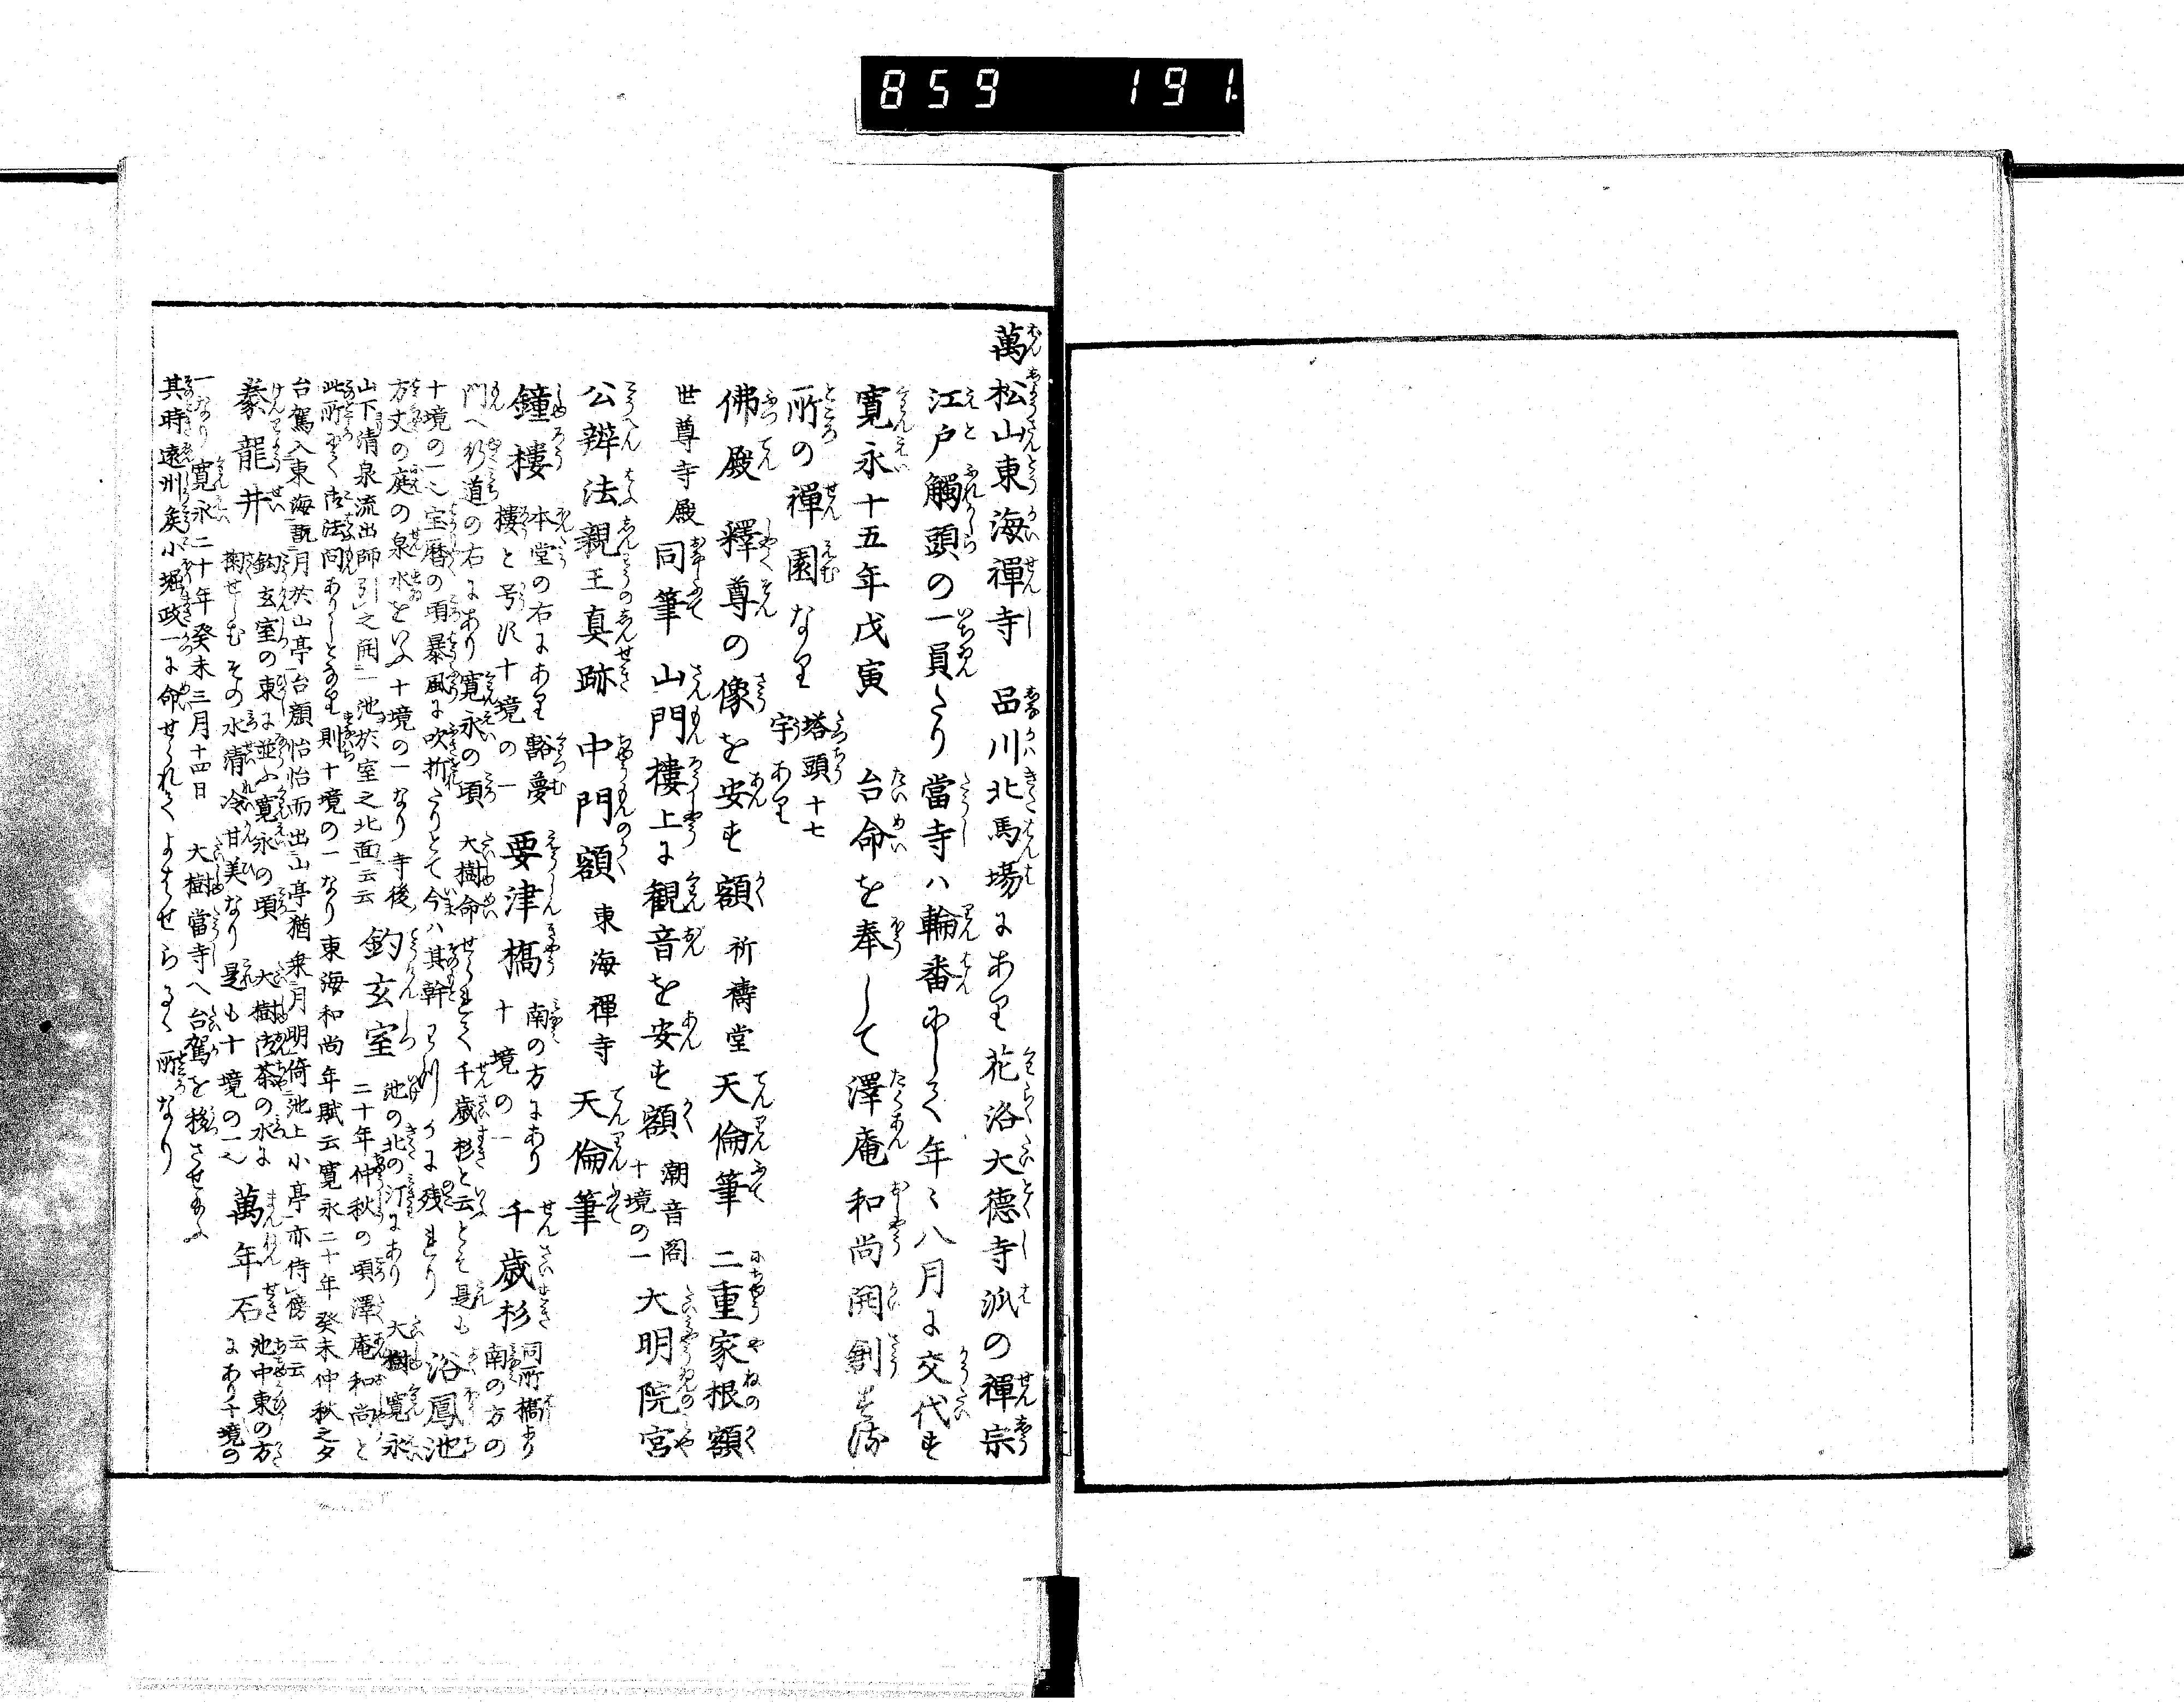 859 191
萬松山東海禪寺 品川北馬場にあり花洛大德寺派の禪宗
江戸觸頭の一員たり當寺ハ輪番にして年〻八月に交代す
寛永十五年戊寅 台命を奉して澤庵和尚開創する
所の禪園なり 塔頭十七
宇あり
佛殿 釋尊の像を安す額 祈禱堂 天倫筆 二重家根額
世尊寺殿 同筆 山門樓上に観音を安す額 潮音閣
十境の一 大明院宮
公辨法親王真跡 中門額 東海禪寺 天倫筆
鐘樓 本堂の右にあり 豁夢
樓と号す十境の一 要津橋 南の方にあり
十境の一 千歳杉 同所橋より
南の方の
門へ行道の右にあり寛永の頃 大樹命せられて千歳杉と云とそ是も
十境の一也宝暦の頃暴風に吹折たりとて今ハ其幹のミ残れり 浴鳳池
方丈の庭の泉水をいふ十境の一なり寺後
山下清泉流出師引之開一池於室之北面云云 釣玄室 池の北の汀にあり 大樹寛永
二十年仲秋の頃澤庵和尚と
此所にて法問ありしとなり則十境の一なり東海和尚年賦云寛永二十年癸未仲秋之夕
台駕入東海翫月於山亭台顔怡怡而出山亭猶乗月明倚池上小亭亦侍傍云云
豢龍井 釣玄室の東に並ふ寛永の頃 大樹御茶の水に
掬せしむその水清冷甘美なり是も十境の一也 萬年石 池中東の方
にあり十境の
一なり寛永二十年癸未三月十四日 大樹當寺へ台駕を移させ給ふ
其時遠州矦小堀政一に命せられて
所なり